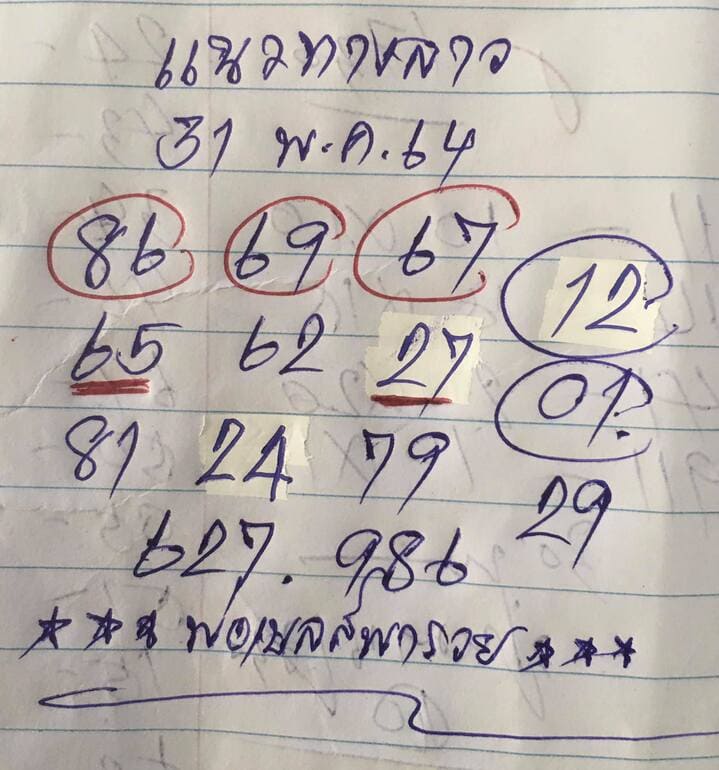 แนวทางลาว
31 พ.ค.64
86 69 67 12
65 62 27 01
81 24 79 29
627. 986
*** พ่อเบลล์พารวย ***